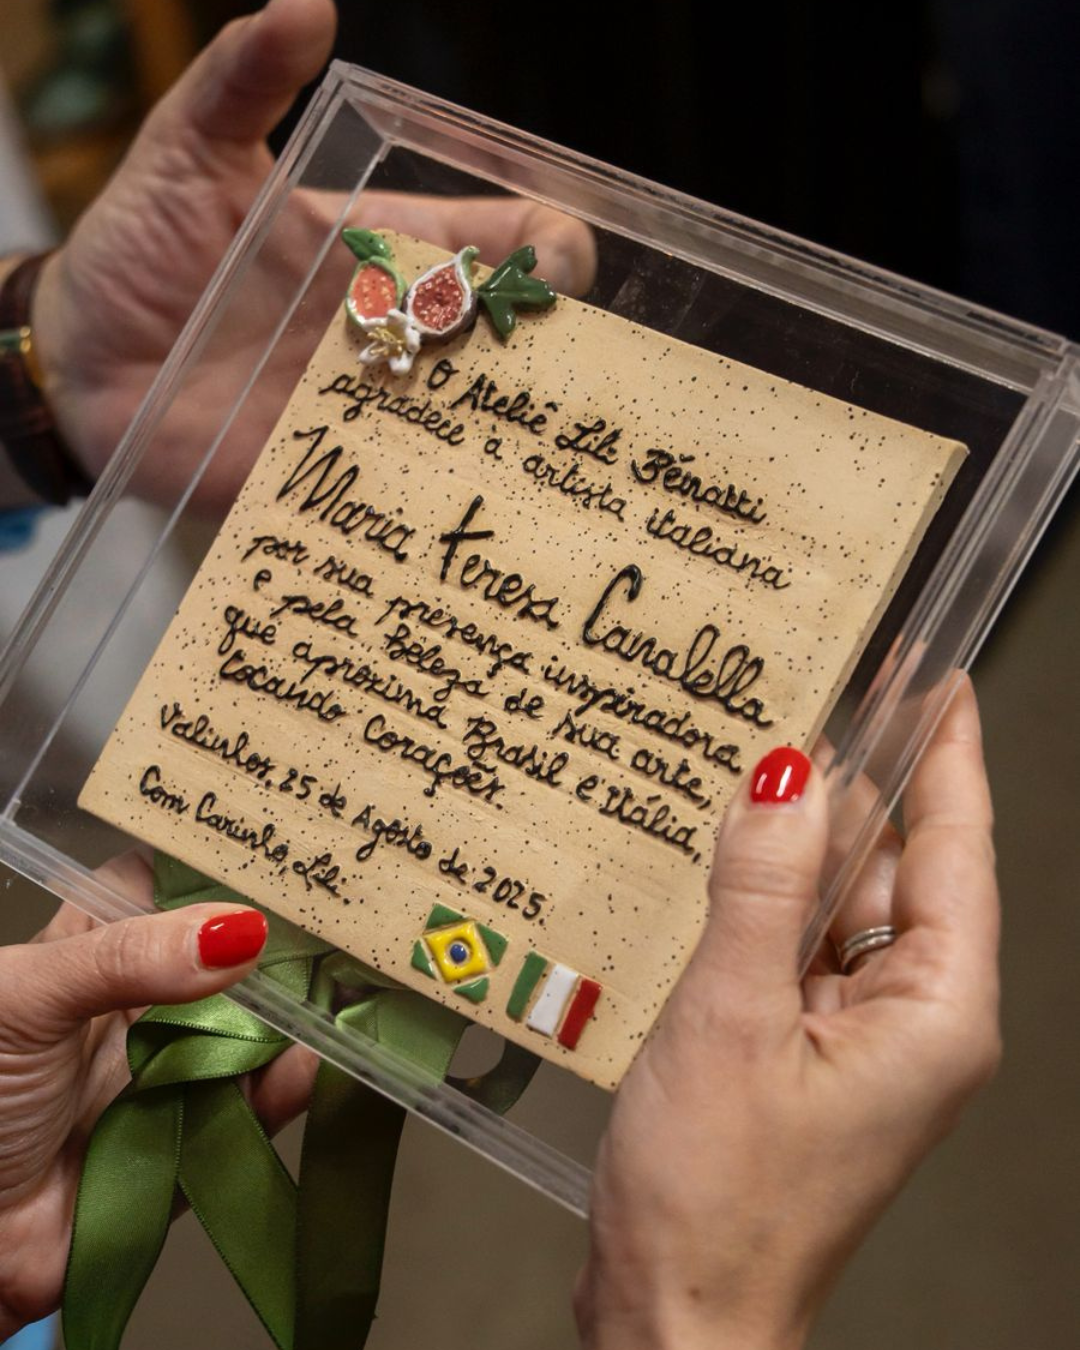 O Ateliê Lili Benatti
agradece à artista italiana
Maria Teresa Canalella
por sua presença inspiradora
e pela Beleza de sua arte,
que aproxima Brasil e Itália,
tocando Corações.
Valinhos, 25 de Agosto de 2025.
Com Carinho, Lili.